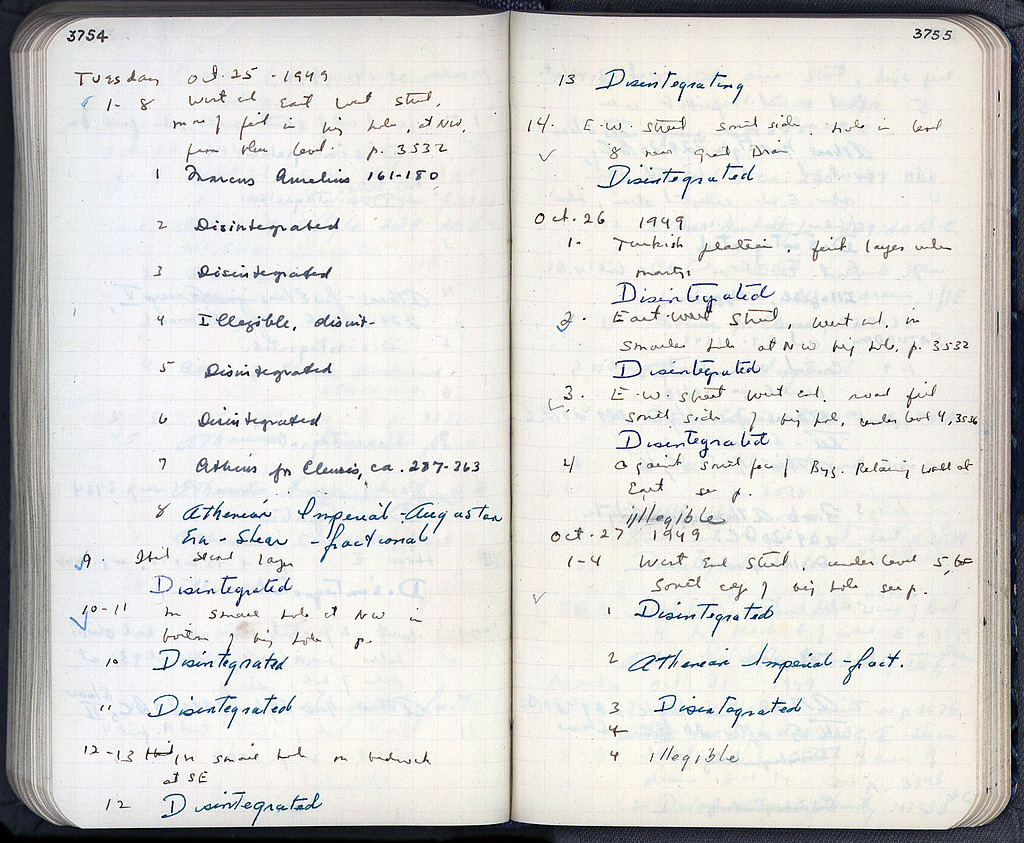 3754
Tuesday Oct. 25 - 1949
1-8 West end East West Street,
more of fill in big hole, at NW,
from then level. p. 3532
1 Marcus Aurelius 161-180
2 Disintegrated
3 Disintegrated
4 Illegible, disint-
5 Disintegrated
6 Disintegrated
7 Athens for Eleusis, ca. 287-263
8 Athenian Imperial-Augustan
Era - Stear - fractional
9 second layer
Disintegrated
10-11 In small hole at NW in
bottom of big hole p.
10 Disintegrated
11 Disintegrated
12-13 In small hole on bedrock
at SE
12 Disintegrated
3755
13 Disintegrating
14. E.W. Street South side hole in level
8 near great Drain
Disintegrated
Oct. 26 1949
1- Turkish plateia, first layer under
Disintegrated
2. East-West Street, West end, in
smaller hole at NW big hole, p. 3532
Disintegrated
3. E.W. Street West end. road fill
South side of big hole, under level 4, 3536
Disintegrated
4 Against South face of Byz. Retaining Wall at
East see p.
illegible
Oct. 27 1949
1-4 West End Street under level 5,
South edge of big hole see p.
1 Disintegrated
2 Athenian Imperial - fract.
3 Disintegrated
4
4 illegible